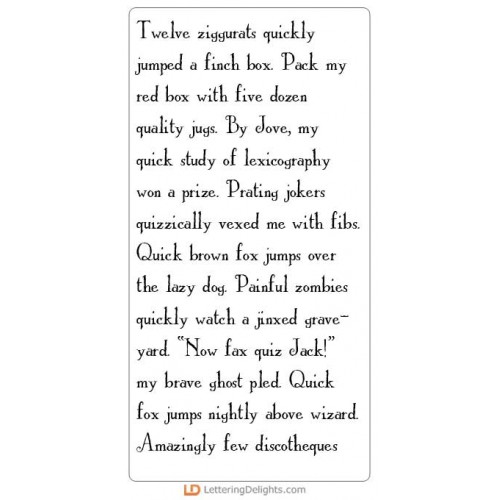 Twelve ziggurats quickly
jumped a finch box. Pack my
red box with five dozen
quality jugs. By Jove, my
quick study of lexicography
won a prize. Prating jokers
quizzically vexed me with fibs.
Quick brown fox jumps over
the lazy dog. Painful zombies
quickly watch a jinxed grave-
yard. "Now fax quiz Jack!"
my brave ghost pled. Quick
fox jumps nightly above wizard.
Amazingly few discotheques
LD LetteringDelights.com